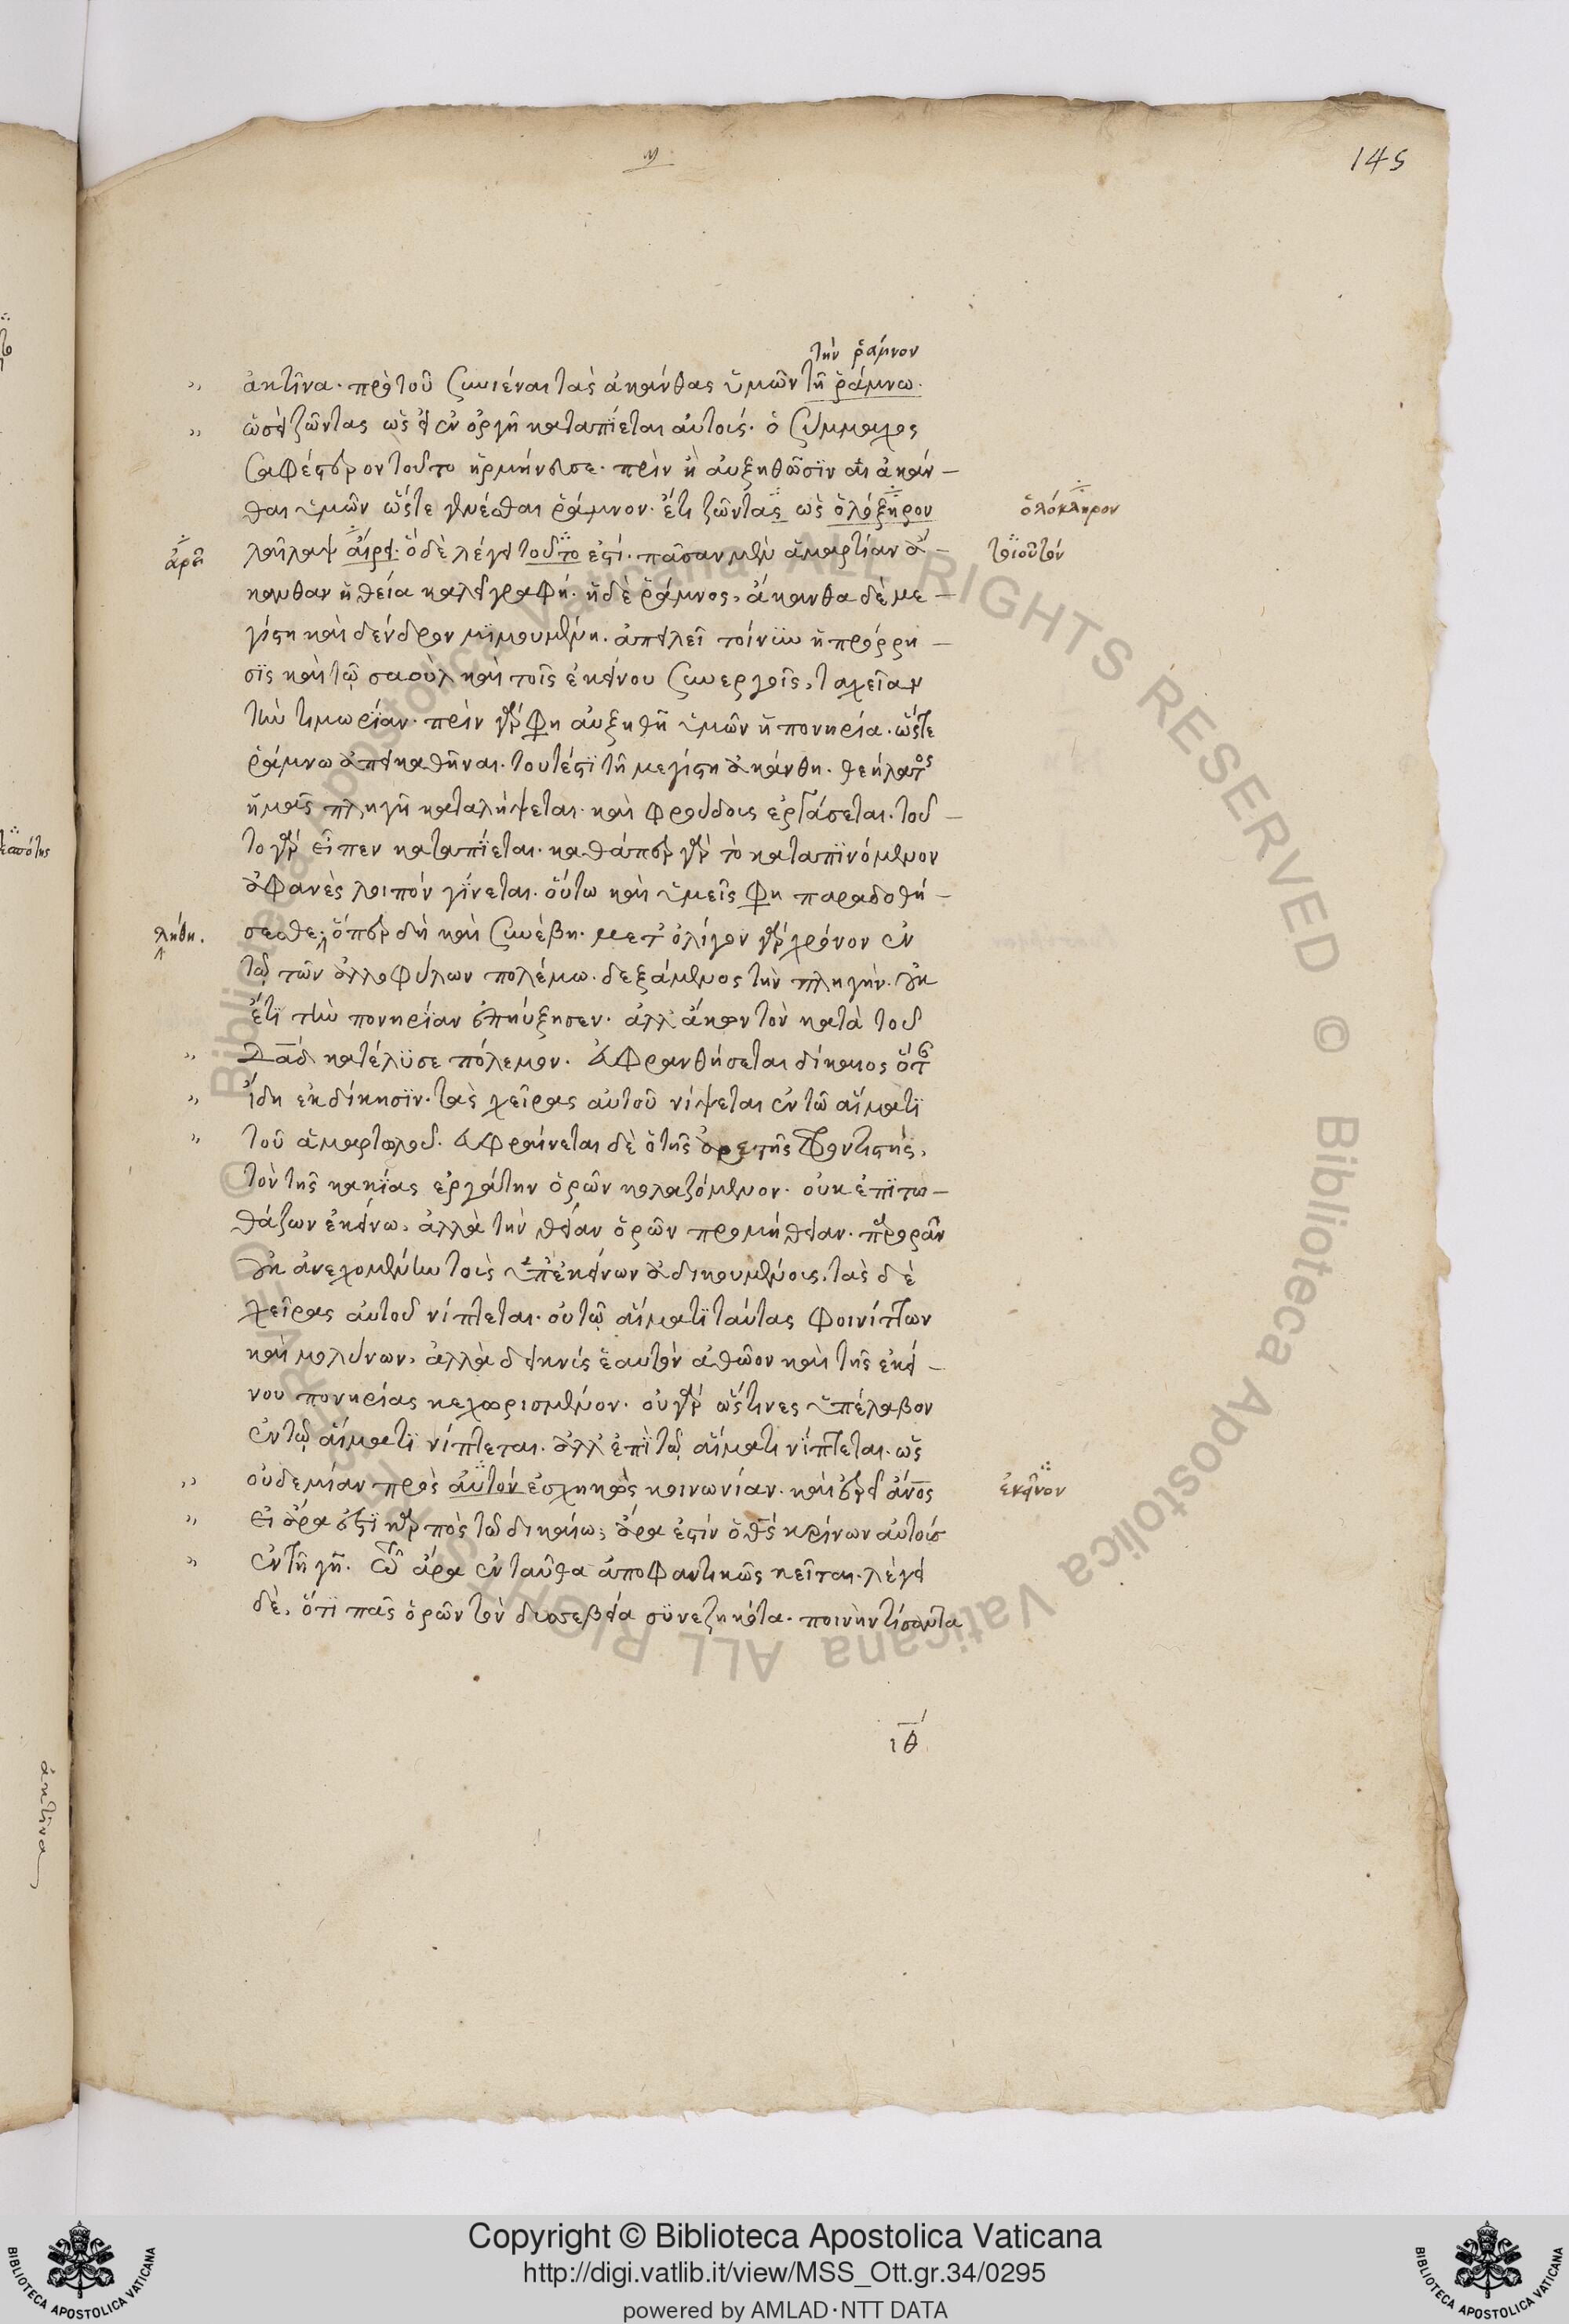 145
τὴν ῥάμνον
ἀκτῖνα. πρὸ τοῦ συνιέναι τὰς ἀκάνθας ὑμῶν τῇ ῥάμνω.
ὡσεὶ ζῶντας ὡς ἐν ὀργῇ καταπίεται αὐτούς. ὁ Σύμμαχος
σαφέστερον τοῦτο ἡρμήνευσε. πρὶν ἢ αὐξηθῶσιν αἱ ἄκαν-
θαι ὑμῶν ὥστε γενέσθαι ῥάμνον. ἔτι ζῶντας ὡς ὁλόξηρον
ὁλόκληρον
ἀρεῖ
λαῖλαψ αἴρει. ὃ δὲ λέγει τοῦτο ἐστί. πᾶσαν μὲν ἁμαρτίαν ἄ-
τοιοῦτόν
κανθαν ἡ θεία καλεῖ γραφή. ἡ δὲ ῥάμνος, ἄκανθα δὲ με-
γίστη καὶ δένδρον μιμουμένη. ἀπειλεῖ τοίνυν ἡ πρόρρη-
σις καὶ τῷ σαοὺλ καὶ τοῖς ἐκείνου συνεργοῖς, ταχεῖαν
τὴν τιμωρίαν. πρὶν γάρ φη αὐξηθῇ ὑμῶν ἡ πονηρία. ὥστε
ῥάμνω ἀπεικαθῆναι. τουτέστι τῇ μεγίστη ἀκάνθη. θεήλατος
ἡμᾶς πληγὴ καταλήψεται. καὶ φρούδους ἐργάσεται. τοῦ-
το γὰρ εἶπεν καταπίεται. καθάπερ γὰρ τὸ καταπινόμενον
ἀφανὲς λοιπὸν γίνεται. οὕτω καὶ ὑμεῖς φη παραδοθή-
λήθη.
σεσθε, ὅπερ δὴ καὶ συνέβη. μετ' ὀλίγον γὰρ χρόνον ἐν
τῷ τῶν ἀλλοφύλων πολέμω. δεξάμενος τὴν πληγὴν. οὐκ
ἔτι τὴν πονηρίαν ἐπηύξησεν. ἀλλ' ἄκων τὸν κατὰ τοῦ
Δαδ κατέλυσε πόλεμον. εὐφρανθήσεται δίκαιος ὅταν
ἴδη ἐκδίκησιν. τὰς χεῖρας αὐτοῦ νίψεται ἐν τῷ αἵματι
τοῦ ἁμαρτωλοῦ. εὐφραίνεται δὲ ὁ τῆς ἀρετῆς φροντιστής,
τὸν τῆς κακίας ἐργάτην ὁρῶν κολαζόμενον. οὐκ ἐπιτω-
θάζων ἐκείνω, ἀλλὰ τὴν θείαν ὁρῶν προμήθειαν. περιορᾶν
οὐκ ἀνεχομένην τοὺς ὑπ' ἐκείνων ἀδικουμένους. τὰς δὲ
χεῖρας αὐτοῦ νίπτεται. οὐ τῷ αἵματι ταύτας φοινίττων
καὶ μολύνων, ἀλλὰ δεικνὺς ἑαυτὸν ἀθῶον καὶ τῆς ἐκεί-
νου πονηρίας κεχωρισμένον. οὐ γὰρ ὥς τινες ὑπέλαβον
ἐν τῷ αἵματι νίπτεται. ἀλλ' ἐπὶ τῷ αἵματι νίπτεται. ὡς
οὐδεμίαν πρὸς αὐτὸν ἐσχηκὼς κοινωνίαν. καὶ ἐρεῖ ἄνος
ἐκεῖνον
εἰ ἄρα ἐστὶ καρπὸς τῷ δικαίω, ἄρα ἐστὶν ὁ θς κρίνων αὐτοὺς
ἐν τῇ γῇ. τὸ ἄρα ἐνταῦθα ἀποφαντικῶς κεῖται. λέγει
δὲ, ὅτι πᾶς ὁρῶν τὸν δυσσεβεία συνεζηκότα. ποινὴν τίσαντα
ιθ
ἀκτῖνα